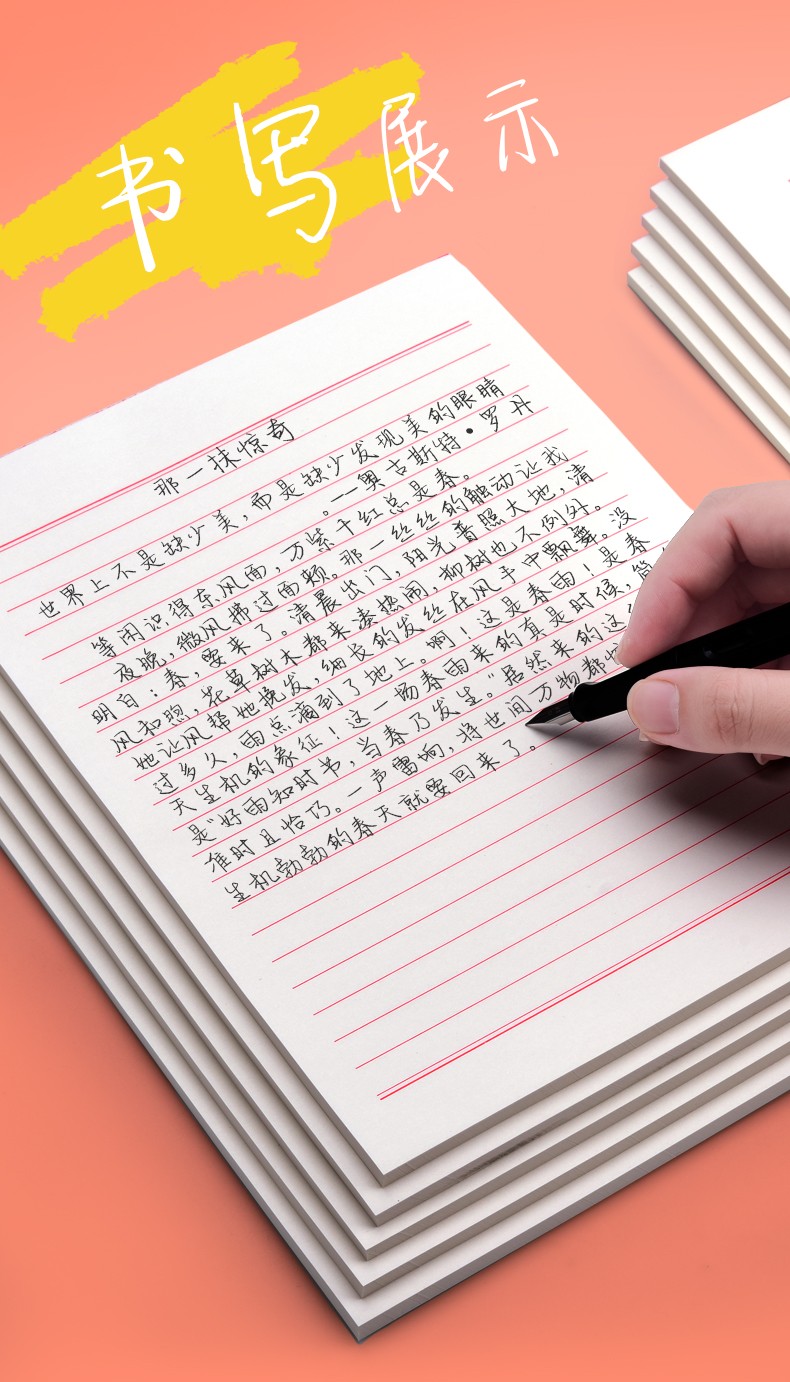 书写展示
那一抹惊奇
世界上不是缺少美，而是缺少发现美的眼睛
。——奥古斯特·罗丹
等闲识得东风面，万紫千红总是春。
夜晚，微风拂过面颊。那一丝丝的触动让我
明白：春，要来了。清晨出门，阳光普照大地，清
风和煦，花草树木都来凑热闹，柳树也不例外。
她让风帮她挽发，细长的发丝在风手中飘舞。没
过多久，雨点滴到了地上。啊！这是春雨！是春
天生机的象征！这一场春雨来的真是时候，简
是“好雨知时书，当春乃发生。”居然来的这
准时且恰巧。一声雷响，将世间万物都
生机勃勃的春天就要回来了。